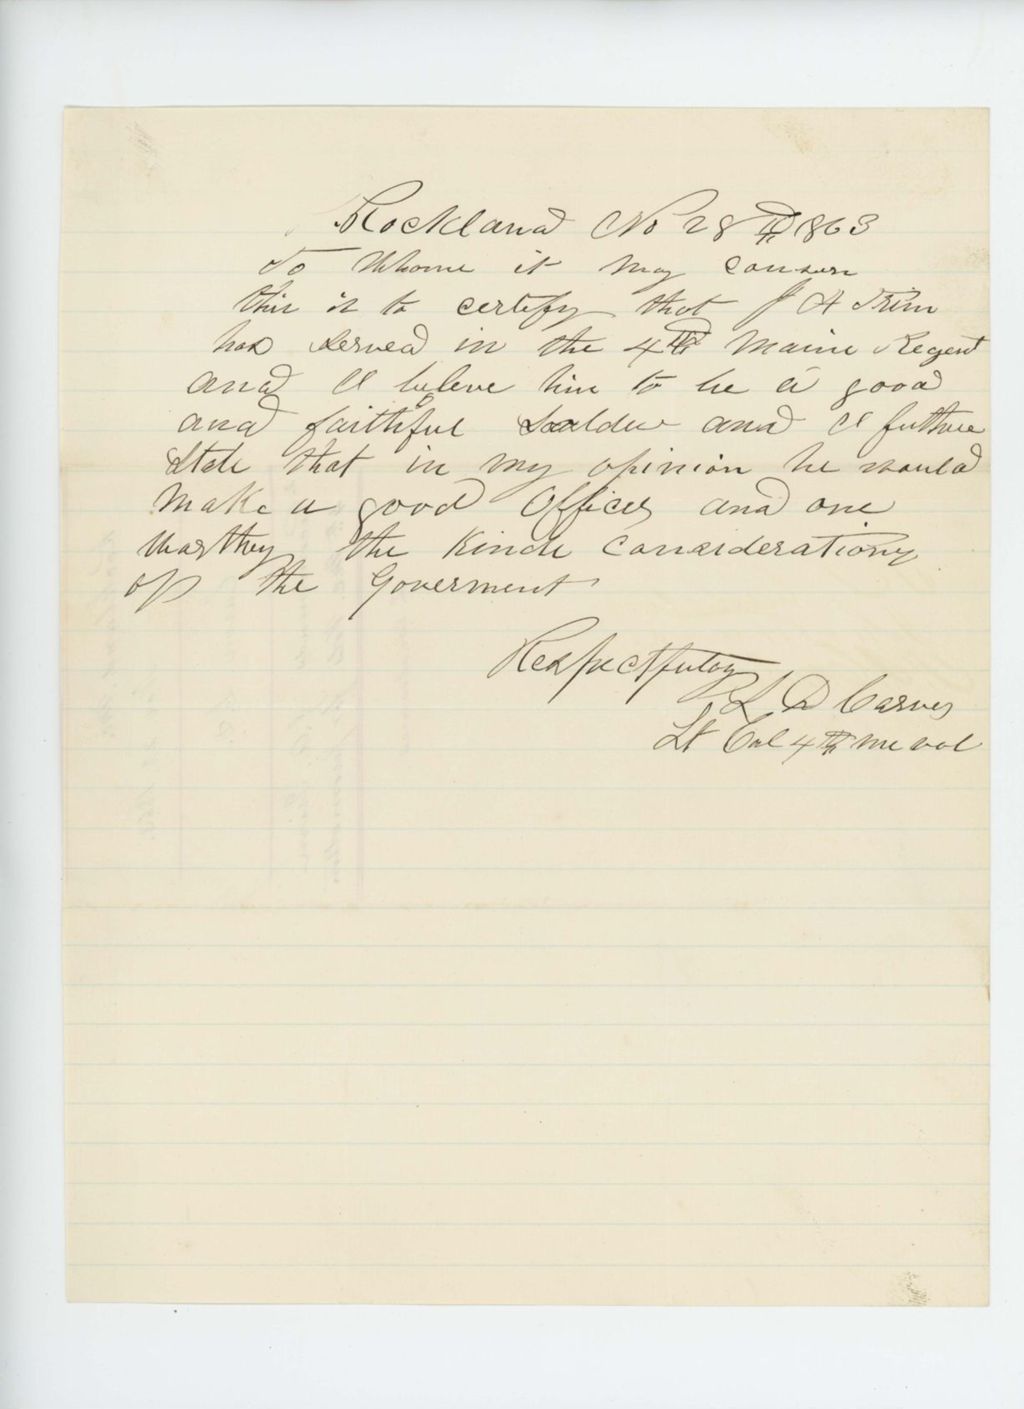 Rockland No 28th 1863
To Whome it may consern
this is to certify that J H Trim
has served in the 4th Maine Regent
and I beleve him to be a good
and faithful Soalder and I futhure
State that in my opinion he would
make a good Officer and one
Worthey the Kinde Considerationg
of the Goverment
Respectfuly
L D Carver
Lt Col 4th Me vol